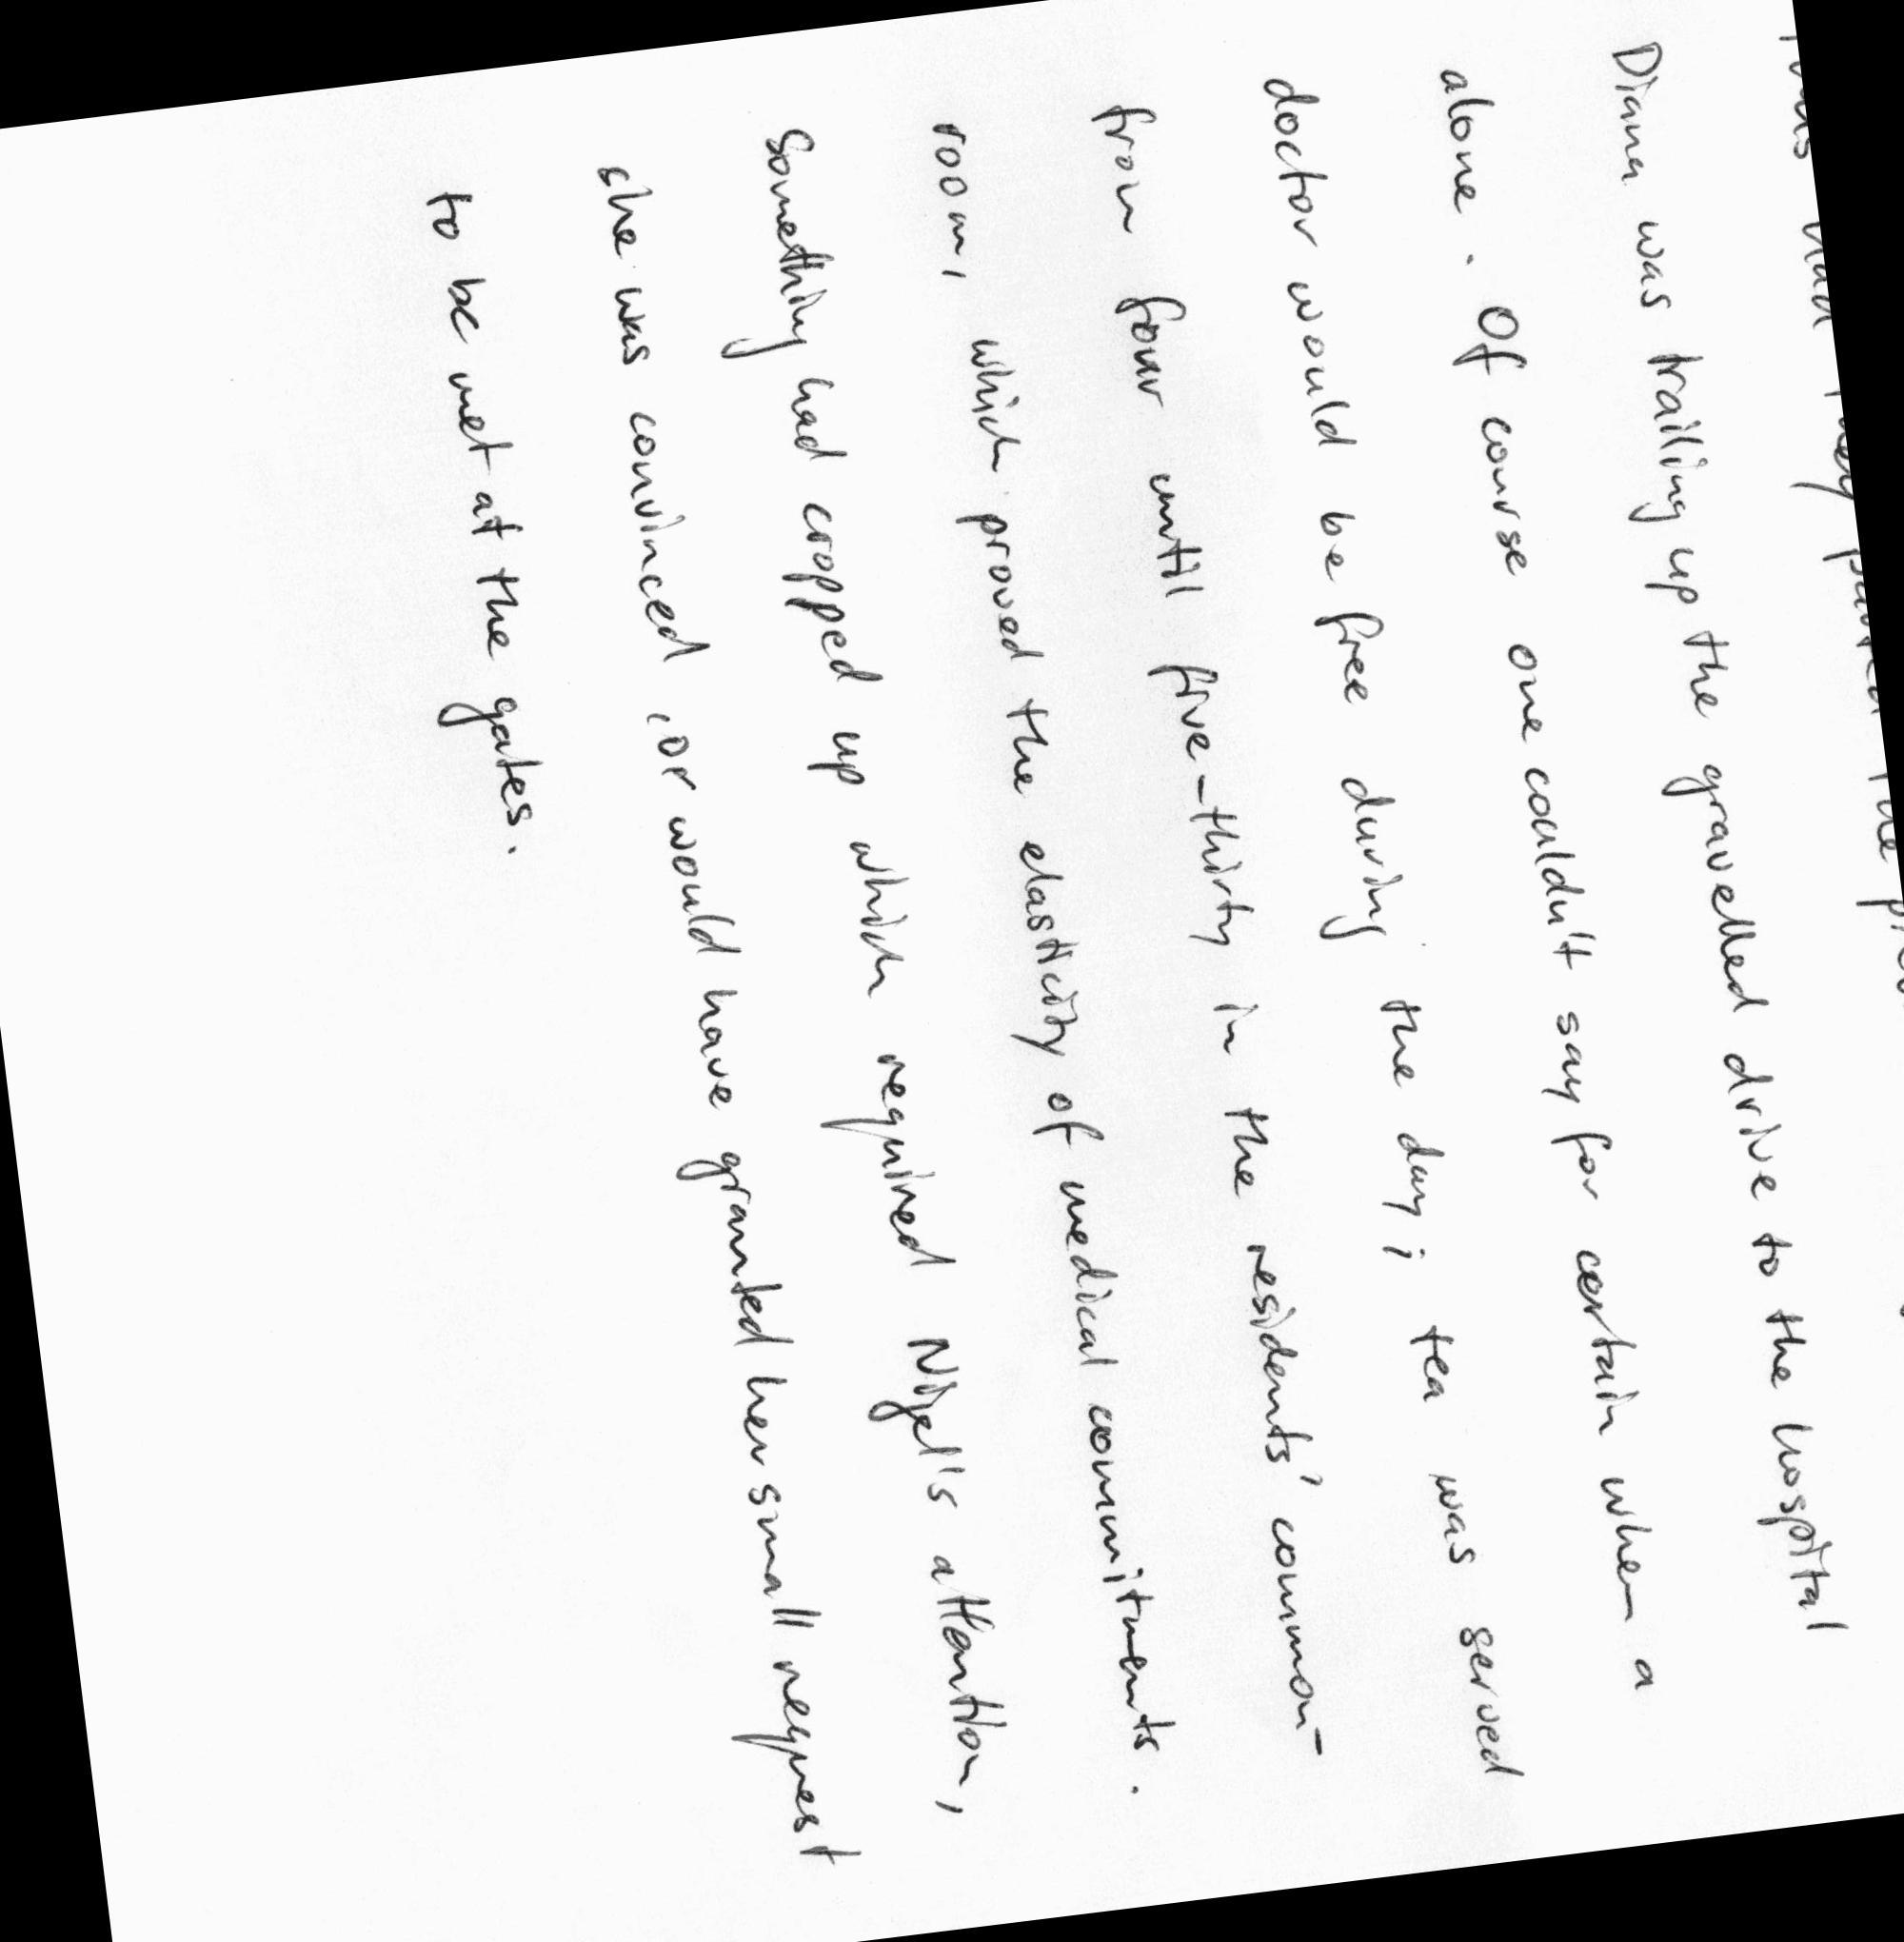 Diana was trailing up the gravelled drive to the hospital
alone. Of course one couldn't say for certain when a
doctor would be free during the day; tea was served
from four until five-thirty in the residents' common-
room, which proved the elasticity of medical commitments.
Something had cropped up which required Nigel's attention,
she was convinced, or would have granted her small request
to be met at the gates.